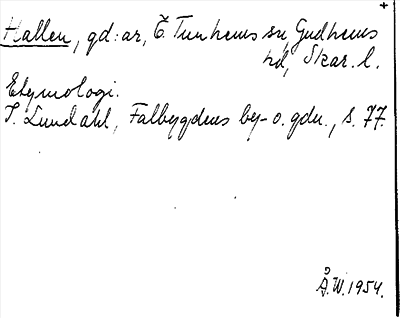 +
Hallen, gd:ar, Ö. Tunhems sn, Gudhems
hd, Skar. l.
Etymologi.
I. Lundahl, Falbygdens by- o. gdn., s. 77.
Å.W. 1954.